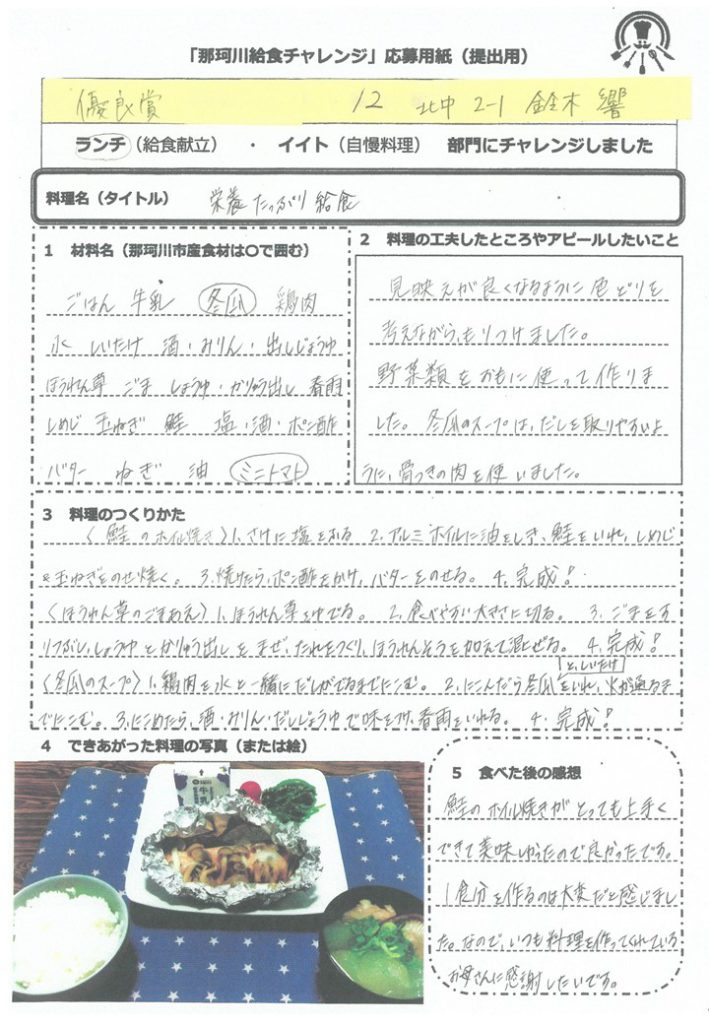 「那珂川給食チャレンジ」応募用紙（提出用）
優良賞 12 北中 2-1 鈴木 響
ランチ（給食献立）・イイト（自慢料理） 部門にチャレンジしました
料理名（タイトル） 栄養たっぷり給食
1 材料名（那珂川市産食材は〇で囲む）
ごはん 牛乳 冬瓜 鶏肉
水 しいたけ 酒・みりん・出しじょうゆ
ほうれん草 ごま しょうゆ・かりゅう出し 春雨
しめじ 玉ねぎ 鮭 塩・酒・ポン酢
バター ねぎ 油 ミニトマト
2 料理の工夫したところやアピールしたいこと
見映えが良くなるように色どりを
考えながら、もりつけました。
野菜類をおもに使って作りま
した。冬瓜のスープは、だしを取りやすいよ
うに、骨つきの肉を使いました。
3 料理のつくりかた
〈鮭のホイル焼き〉1、さけに塩をふる 2、アルミホイルに油をしき、鮭をいれ、しめじ
&玉ねぎをのせ焼く。 3、焼けたら、ポン酢をかけ、バターをのせる。 4、完成!
〈ほうれん草のごまあえ〉1、ほうれん草をゆでる。 2、食べやすい大きさに切る。 3、ごまをす
りつぶし、しょうゆとかりゅう出しをまぜ、たれをつくり、ほうれんそうを加えて混ぜる。 4、完成!
〈冬瓜のスープ〉1、鶏肉を水と一緒にだしがでるまでにこむ。 2、にこんだら冬瓜と、しいたけをいれ、火が通るま
でにこむ。 3、にこめたら、酒・みりん・だしじょうゆで味をつけ、春雨をいれる。 4、完成!
4 できあがった料理の写真（または絵）
牛乳
5 食べた後の感想
鮭のホイル焼きがとっても上手く
できて美味しかったので良かったです。
1食分を作るのは大変だと感じまし
た。なので、いつも料理を作ってくれている
お母さんに感謝したいです。